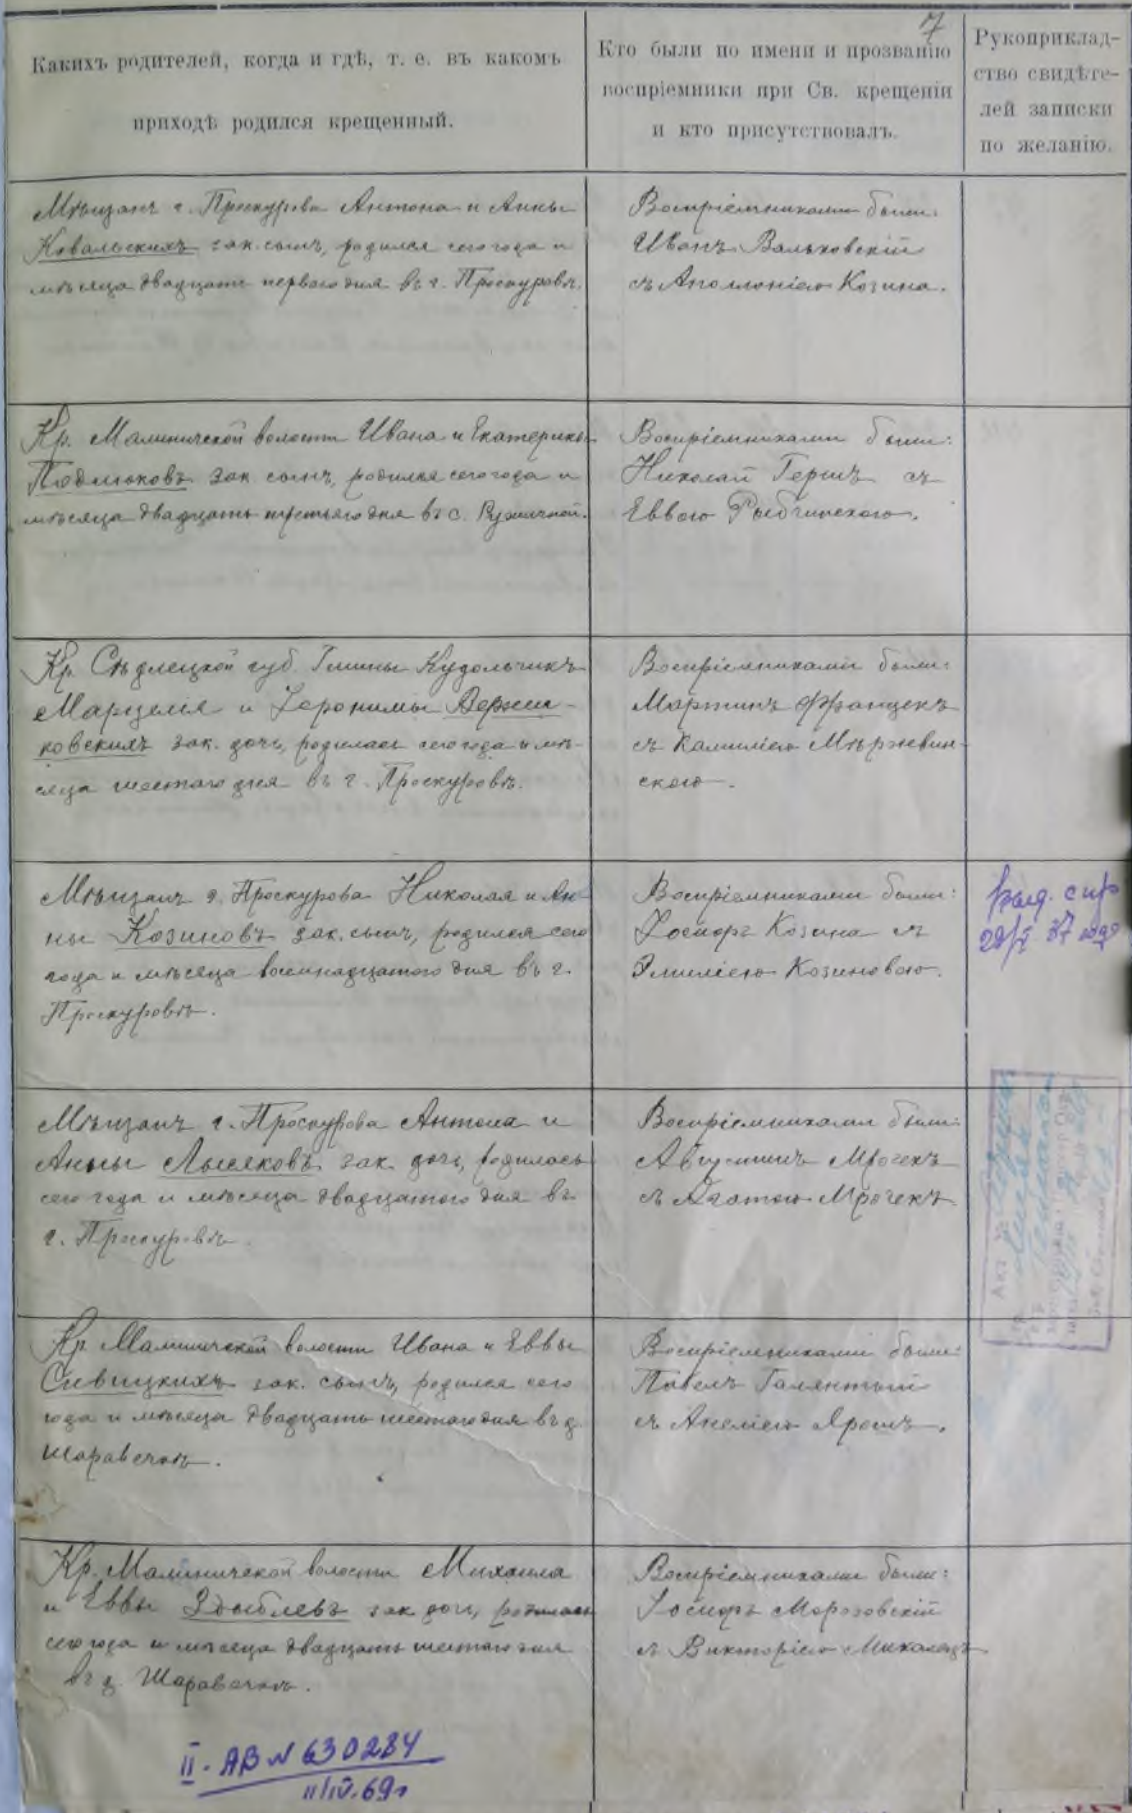 7
Какихъ родителей, когда и гдѣ, т. е. въ какомъ
приходѣ родился крещенный.
Кто были по имени и прозванію
воспріемники при Св. крещеніи
и кто присутствовалъ.
Рукоприклад-
ство свидѣте-
лей записки
по желанію.
Мѣщанъ г. Проскурова Антона и Анны
Ковальскихъ зак. сынъ, родился сего года и
мѣсяца двадцать перваго дня въ г. Проскуровѣ.
Воспріемниками были:
Иванъ Вальковскій
съ Аполлоніею Козина.
Кр. Малиничской волости Ивана и Екатерины
Подлюковъ зак. сынъ, родился сего года и
мѣсяца двадцать третьяго дня въ с. Ружичной.
Воспріемниками были:
Николай Гершъ съ
Еввою Рыбчинскою.
Кр. Сѣдлецкой губ. Гмины Кудольчикъ
Марцелія и Іеронимы Вержи-
ковскихъ зак. дочь, родилась сего года и мѣ-
сяца шестаго дня въ г. Проскуровѣ.
Воспріемниками были:
Мартинъ Францекъ
съ Камиліею Мѣржевин-
скою.
Мѣщанъ г. Проскурова Николая и Ан-
ны Козиновъ зак. сынъ, родился сего
года и мѣсяца восемнадцатого дня въ г.
Проскуровѣ.
Воспріемниками были:
Іосифъ Козина съ
Эмиліею Козиновою.
Мѣщанъ г. Проскурова Антона и
Анны Лысяковъ зак. дочь, родилась
сего года и мѣсяца двадцатого дня въ
г. Проскуровѣ.
Воспріемниками были:
Августинъ Мрочекъ
съ Агатою Мрочекъ.
Акт
Кр. Малиничской волости Ивана и Еввы
Сивицкихъ зак. сынъ, родился сего
года и мѣсяца двадцать шестаго дня въ д.
Шаравечкѣ.
Воспріемниками были:
Павелъ Галянтый
съ Анеліею Ярошъ.
Кр. Малиничской волости Михаила
и Еввы Здыблевъ зак. дочь, родилась
сего года и мѣсяца двадцать шестаго дня
въ д. Шаравечкѣ.
Воспріемниками были:
Іосифъ Морозовскій
съ Викторіею Михалецъ
II-АВ N 630284
11/IV.69г